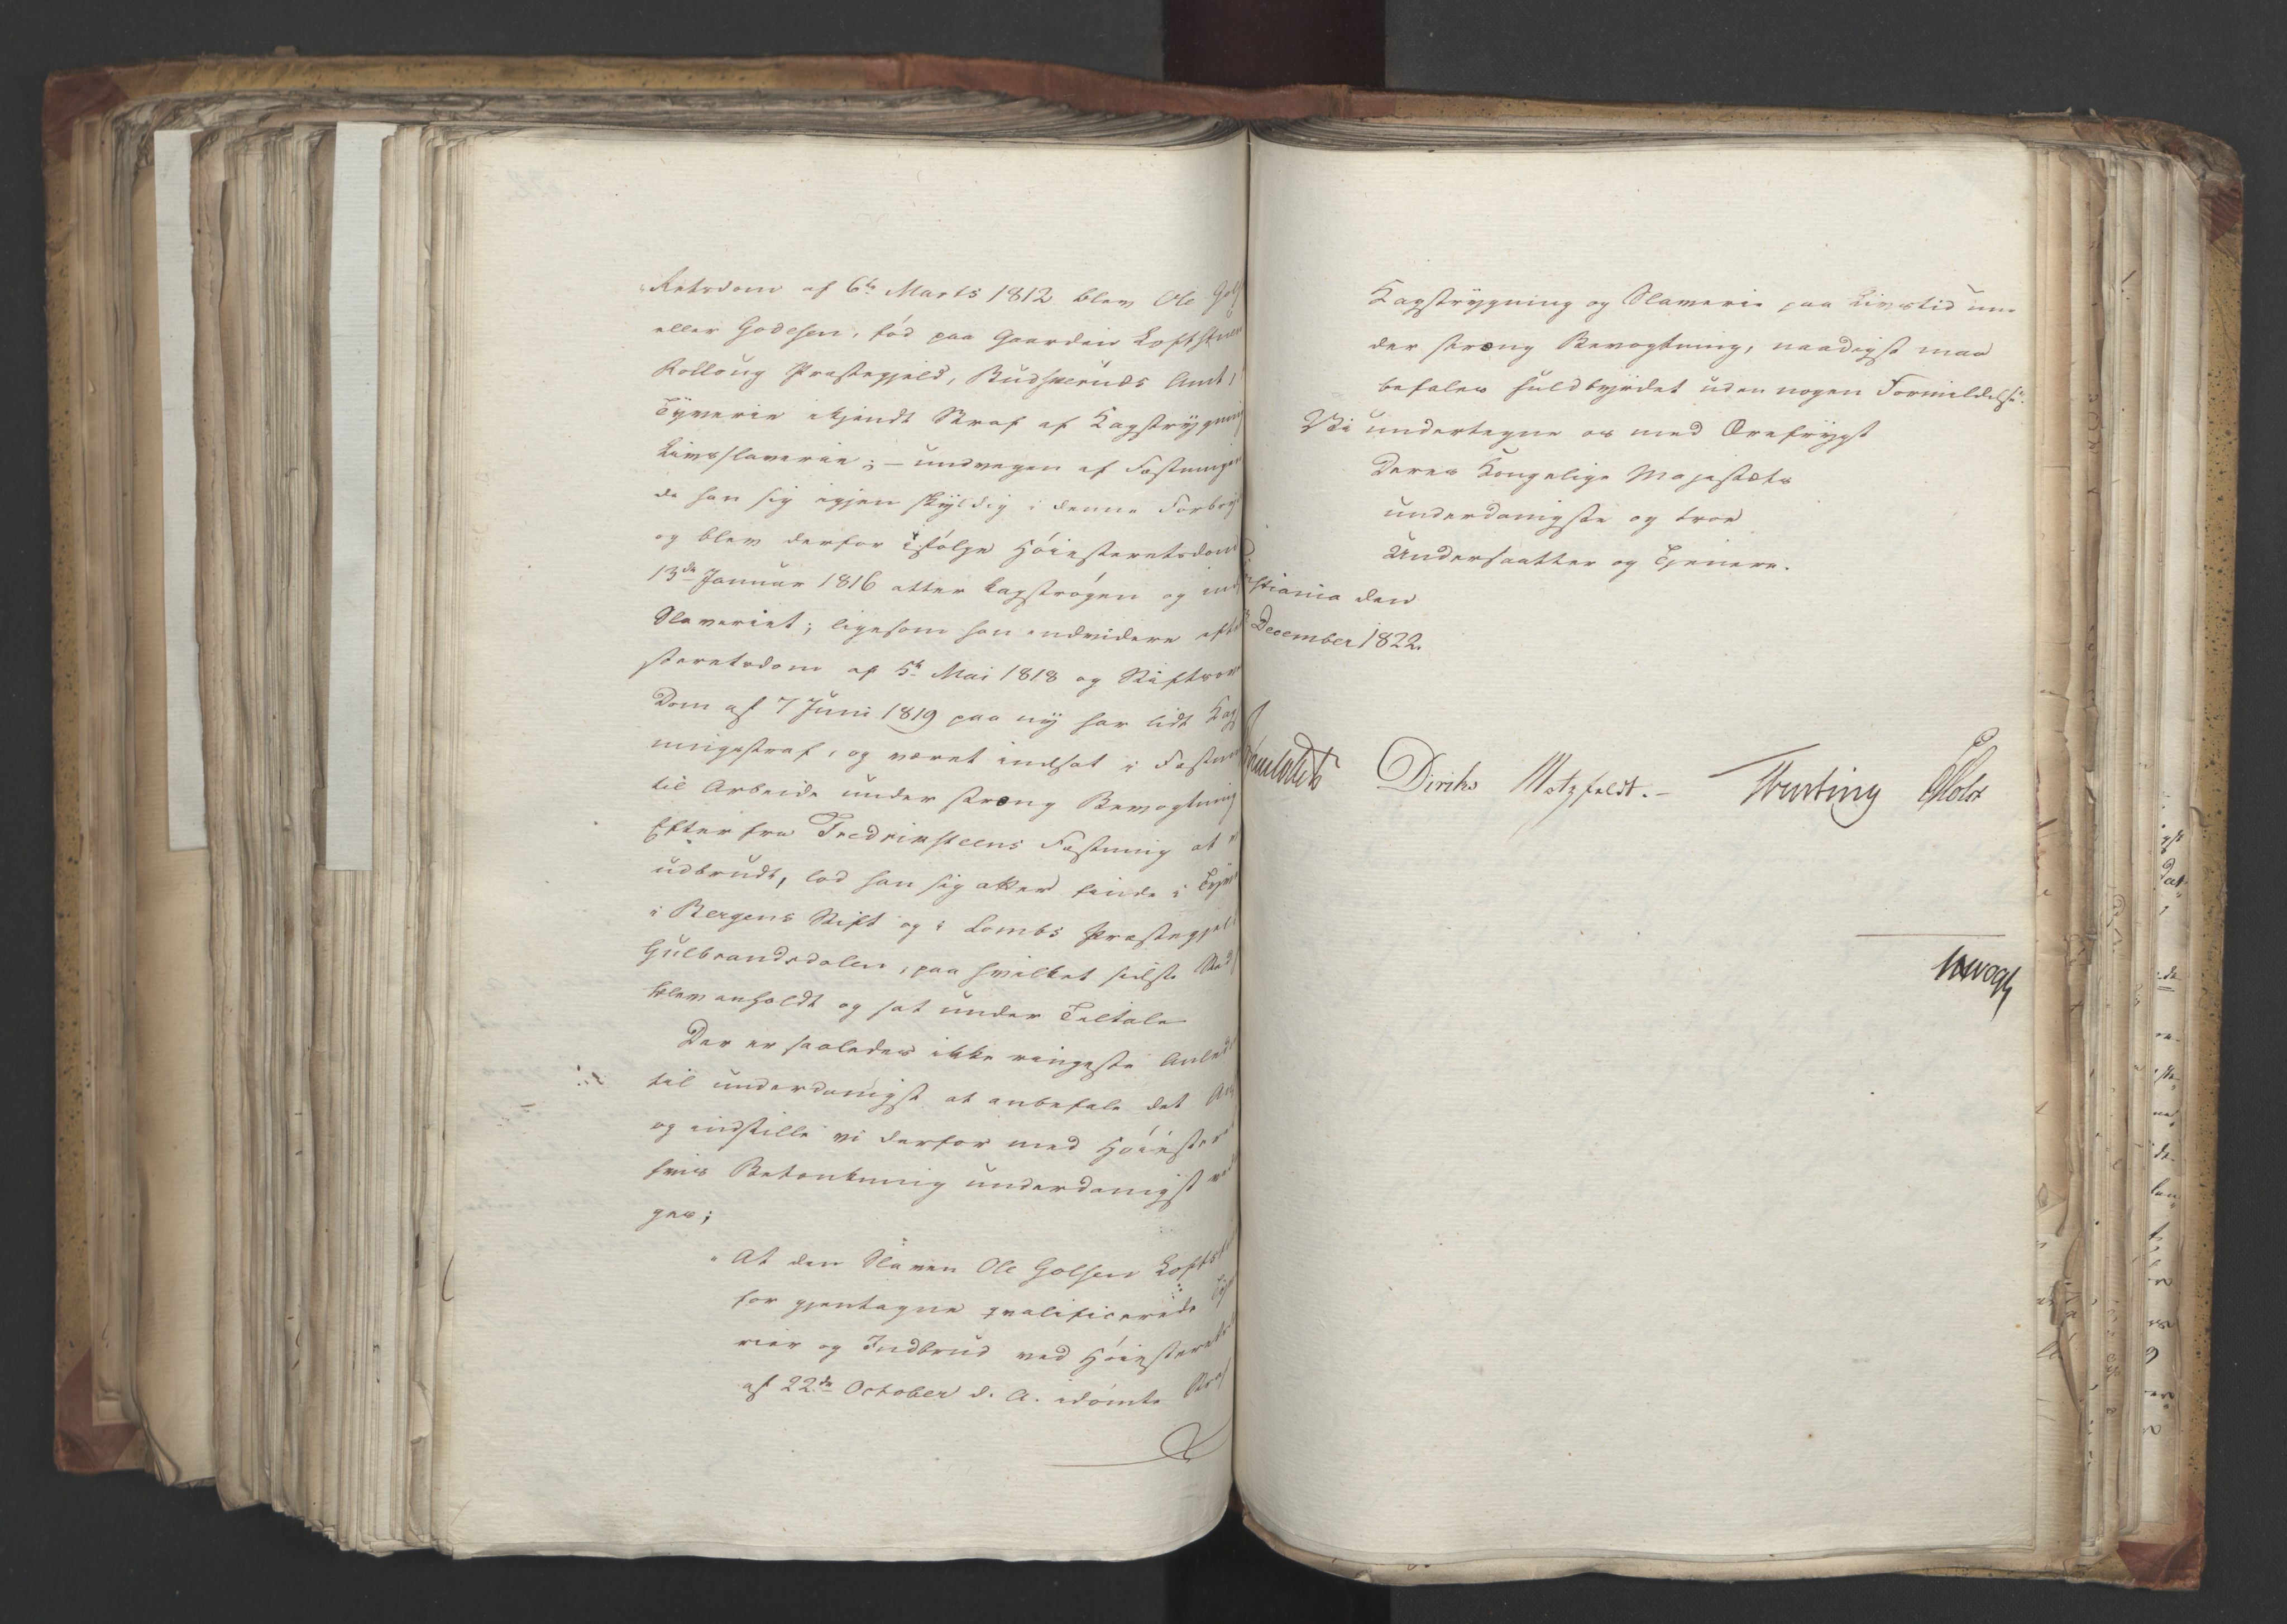 Retsdom af 6te Marts 1812 blev Ole Gols
eller Godesen, fód paa Gaarden Loftstue
Rolloug Præstegjeld, Budskeruds Amt,
Tyverie ikjendt Straf af Kagstrygning
Livsslaverie; – undvegen af Fæstningen
de han sig igjen skyldig i denne Forbry
og blev derfor ifólge Hóiesteretsdom
13de Januar 1816 atter kagstrógen og ind
Slaveriet; ligesom han endvidere efter
steretsdom af 5te Mai 1818 og Stiftsover
Dom af 7 Juni 1819 paa ny har lidt Kag
ningsstraf, og været indsat i Fæstn
til Arbeide under stræng Bevogtning
Efter fra Fredriksteens Fæstning at
udbrudt, lod han sig atter finde i Tyve
i Bergens Stift og i Lombs Præstegjel
Gulbrandsdalen, paa hvilket sidste Sted
blev anholdt og sat under Tiltale
Der er saaledes ikke ringeste Anled
til underdanigst at anbefale det
og indstille vi derfor med Hóiestere
hvis Betænkning underdanigst ved
ges;
"At den Slaven Ole Golsen Lofts
for gjentagne qvalificerede Tyve
rier og Indbrud ved Hóiesterets
af 22de October d. A. idómte Straf
Kagstrygning og Slaverie paa Livstid un-
der stræng Bevogtning, naadigst maa
befales fuldbyrdet uden nogen Formildelse".
Vi undertegne os med Ærefrygt
Deres Kongelige Majestæts
underdanigste og troe
Undersaatter og Tjenere.
stiania den
December 1822.
Diriks Motzfeldt. – Treschow Holst